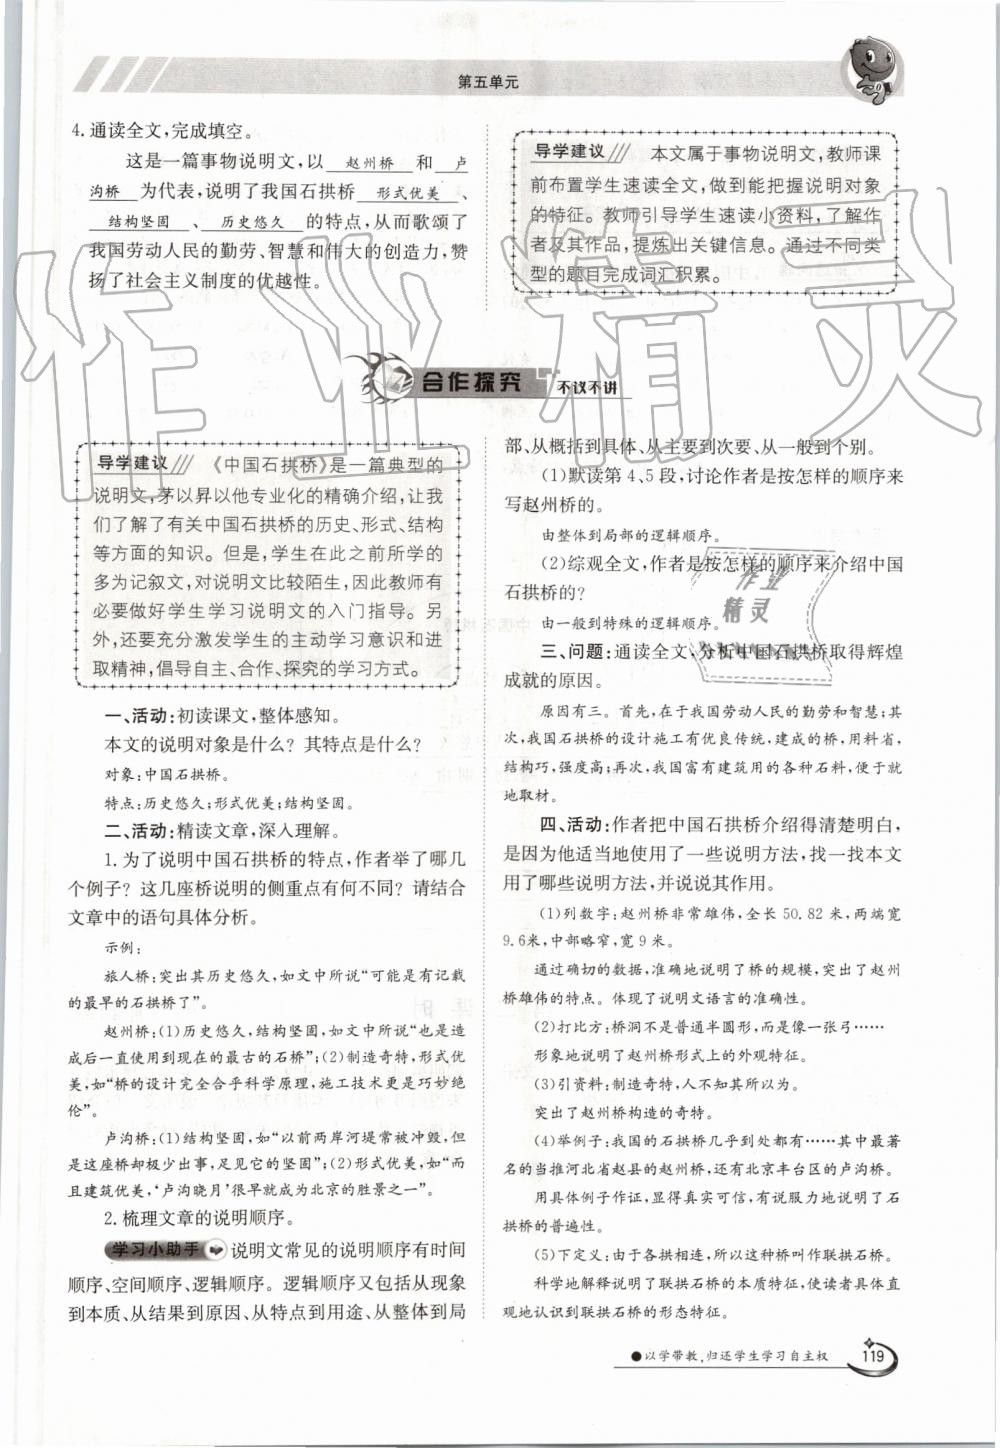 第五单元
4.通读全文,完成填空。
这是一篇事物说明文,以 赵州桥 和 卢
沟桥 为代表,说明了我国石拱桥 形式优美 、
结构坚固 、 历史悠久 的特点,从而歌颂了
我国劳动人民的勤劳、智慧和伟大的创造力,赞
扬了社会主义制度的优越性。
导学建议 本文属于事物说明文,教师课
前布置学生速读全文,做到能把握说明对象
的特征。教师引导学生速读小资料,了解作
者及其作品,提炼出关键信息。通过不同类
型的题目完成词汇积累。
合作探究 不议不讲
导学建议 《中国石拱桥》是一篇典型的
说明文,茅以昇以他专业化的精确介绍,让我
们了解了有关中国石拱桥的历史、形式、结构
等方面的知识。但是,学生在此之前所学的
多为记叙文,对说明文比较陌生,因此教师有
必要做好学生学习说明文的入门指导。另
外,还要充分激发学生的主动学习意识和进
取精神,倡导自主、合作、探究的学习方式。
一、活动:初读课文,整体感知。
本文的说明对象是什么?其特点是什么?
对象:中国石拱桥。
特点:历史悠久;形式优美;结构坚固。
二、活动:精读文章,深入理解。
1.为了说明中国石拱桥的特点,作者举了哪几
个例子?这几座桥说明的侧重点有何不同?请结合
文章中的语句具体分析。
示例:
旅人桥:突出其历史悠久,如文中所说“可能是有记载
的最早的石拱桥了”。
赵州桥:(1)历史悠久,结构坚固,如文中所说“也是造
成后一直使用到现在的最古的石桥”;(2)制造奇特,形式优
美,如“桥的设计完全合乎科学原理,施工技术更是巧妙绝
伦”。
卢沟桥:(1)结构坚固,如“以前两岸河堤常被冲毁,但
是这座桥却极少出事,足见它的坚固”;(2)形式优美,如“而
且建筑优美,‘卢沟晓月’很早就成为北京的胜景之一”。
2.梳理文章的说明顺序。
学习小助手 说明文常见的说明顺序有时间
顺序、空间顺序、逻辑顺序。逻辑顺序又包括从现象
到本质、从结果到原因、从特点到用途、从整体到局
部、从概括到具体、从主要到次要、从一般到个别。
(1)默读第4、5段,讨论作者是按怎样的顺序来
写赵州桥的。
由整体到局部的逻辑顺序。
(2)综观全文,作者是按怎样的顺序来介绍中国
石拱桥的?
由一般到特殊的逻辑顺序。
三、问题:通读全文,分析中国石拱桥取得辉煌
成就的原因。
原因有三。首先,在于我国劳动人民的勤劳和智慧;其
次,我国石拱桥的设计施工有优良传统,建成的桥,用料省,
结构巧,强度高;再次,我国富有建筑用的各种石料,便于就
地取材。
四、活动:作者把中国石拱桥介绍得清楚明白,
是因为他适当地使用了一些说明方法,找一找本文
用了哪些说明方法,并说说其作用。
(1)列数字:赵州桥非常雄伟,全长50.82米,两端宽
9.6米,中部略窄,宽9米。
通过确切的数据,准确地说明了桥的规模,突出了赵州
桥雄伟的特点。体现了说明文语言的准确性。
(2)打比方:桥洞不是普通半圆形,而是像一张弓……
形象地说明了赵州桥形式上的外观特征。
(3)引资料:制造奇特,人不知其所以为。
突出了赵州桥构造的奇特。
(4)举例子:我国的石拱桥几乎到处都有……其中最著
名的当推河北省赵县的赵州桥,还有北京丰台区的卢沟桥。
用具体例子作证,显得真实可信,有说服力地说明了石
拱桥的普遍性。
(5)下定义:由于各拱相连,所以这种桥叫作联拱石桥。
科学地解释说明了联拱石桥的本质特征,使读者具体直
观地认识到联拱石桥的形态特征。
●以学带教,归还学生学习自主权
119
作业精灵
作业
精灵